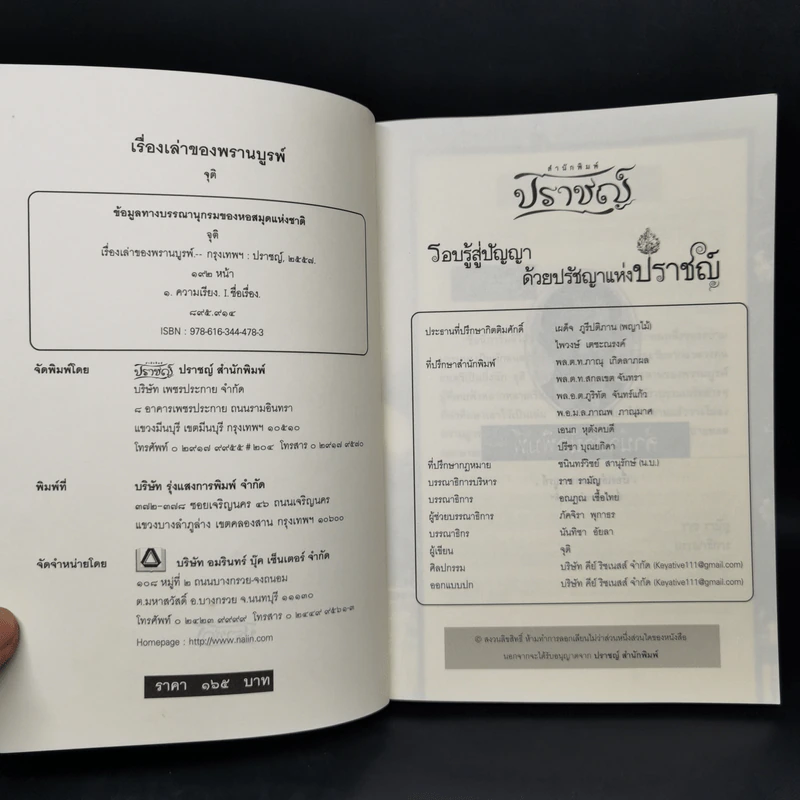 เรื่องเล่าของพรานบูรพ์
จุติ
ข้อมูลทางบรรณานุกรมของหอสมุดแห่งชาติ
จุติ
เรื่องเล่าของพรานบูรพ์.-- กรุงเทพฯ : ปราชญ์, ๒๕๕๗.
๑๙๒ หน้า
๑. ความเรียง. I.ชื่อเรื่อง.
๘๙๕.๙๑๔
ISBN : 978-616-344-478-3
จัดพิมพ์โดย ปราชญ์ ปราชญ์ สำนักพิมพ์
บริษัท เพชรประกาย จำกัด
๘ อาคารเพชรประกาย ถนนรามอินทรา
แขวงมีนบุรี เขตมีนบุรี กรุงเทพฯ ๑๐๕๑๐
โทรศัพท์ ๐ ๒๙๑๗ ๙๙๕๕ # ๒๐๔ โทรสาร ๐ ๒๙๑๗ ๙๕๘๐
พิมพ์ที่ บริษัท รุ่งแสงการพิมพ์ จำกัด
๓๗๒-๓๗๘ ซอยเจริญนคร ๔๖ ถนนเจริญนคร
แขวงบางลำภูล่าง เขตคลองสาน กรุงเทพฯ ๑๐๖๐๐
จัดจำหน่ายโดย บริษัท อมรินทร์ บุ๊ค เซ็นเตอร์ จำกัด
๑๐๘ หมู่ที่ ๒ ถนนบางกรวย-จงถนอม
ต.มหาสวัสดิ์ อ.บางกรวย จ.นนทบุรี ๑๑๑๓๐
โทรศัพท์ ๐ ๒๔๒๓ ๙๙๙๙ โทรสาร ๐ ๒๔๔๙
Homepage : http://www.naiin.com
ราคา ๑๖๕ บาท
สำนักพิมพ์
ปราชญ์
รอบรู้สู่ปัญญา
ด้วยปรัชญาแห่งปราชญ์
ประธานที่ปรึกษากิตติมศักดิ์ เผด็จ ภูรีปติภาน (พญาไม้)
ไพวงษ์ เตชะณรงค์
ที่ปรึกษาสำนักพิมพ์ พล.ต.ท.ภาณุ เกิดลาภผล
พล.ต.ท.สกลเขต จันทรา
พล.อ.ต.ภูริทัต จันทร์แก้ว
พ.อ.ม.ล.ภาณพ ภาณุมาศ
เอนก หุตังคบดี
ปรีชา บุณยกิดา
ที่ปรึกษากฎหมาย ชนินทร์วิชย์ สานุรักษ์ (น.บ.)
บรรณาธิการบริหาร ราช รามัญ
บรรณาธิการ อณญณ เชื้อไทย
ผู้ช่วยบรรณาธิการ ภัคจิรา พุกาธร
บรรณาธิกร นันทิชา อัยลา
ผู้เขียน จุติ
ศิลปกรรม บริษัท คีย์ ริชเนสส์ จำกัด (Keyative111@gmail.com)
ออกแบบปก บริษัท คีย์ ริชเนสส์ จำกัด (Keyative111@gmail.com)
© สงวนลิขสิทธิ์ ห้ามทำการลอกเลียนไม่ว่าส่วนหนึ่งส่วนใดของหนังสือ
นอกจากจะได้รับอนุญาตจาก ปราชญ์ สำนักพิมพ์